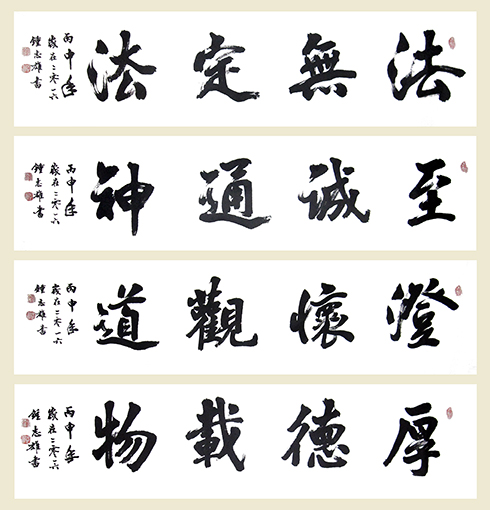 法無定法
丙申年
歲在二零一六
鍾志雄书
至诚通神
丙申年
歲在二零一六
鍾志雄书
澄懷觀道
丙申年
歲在二零一六
鍾志雄书
厚德載物
丙申年
歲在二零一六
鍾志雄书